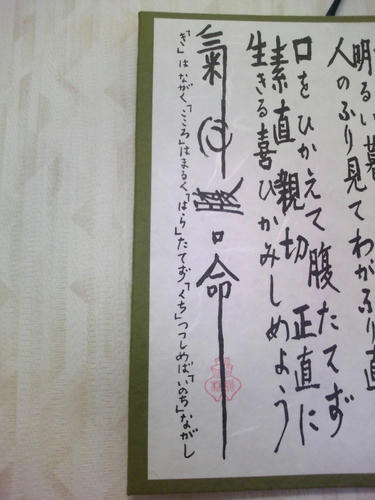 明るい暮
人のふり見てわがふり直
口をひかえて腹たてず
素直親切正直に
生きる喜びかみしめよう
氣心腹口命
「き」はながく、「こころ」はまるく「はら」たてず「くち」つつしめば「いのち」ながし